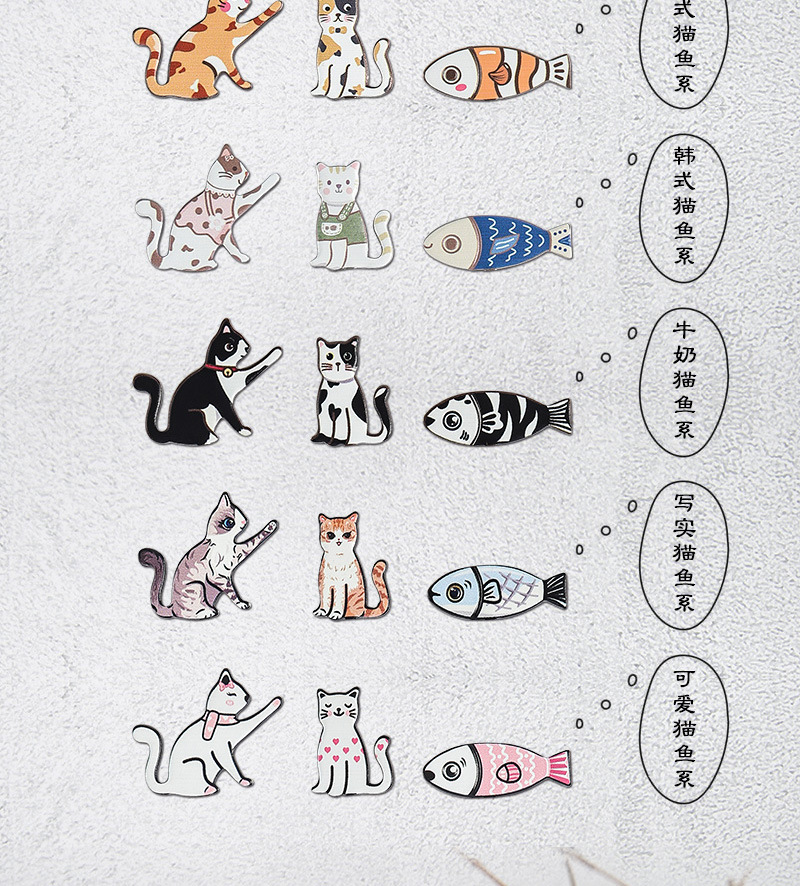 式猫鱼系
韩式猫鱼系
牛奶猫鱼系
写实猫鱼系
可爱猫鱼系